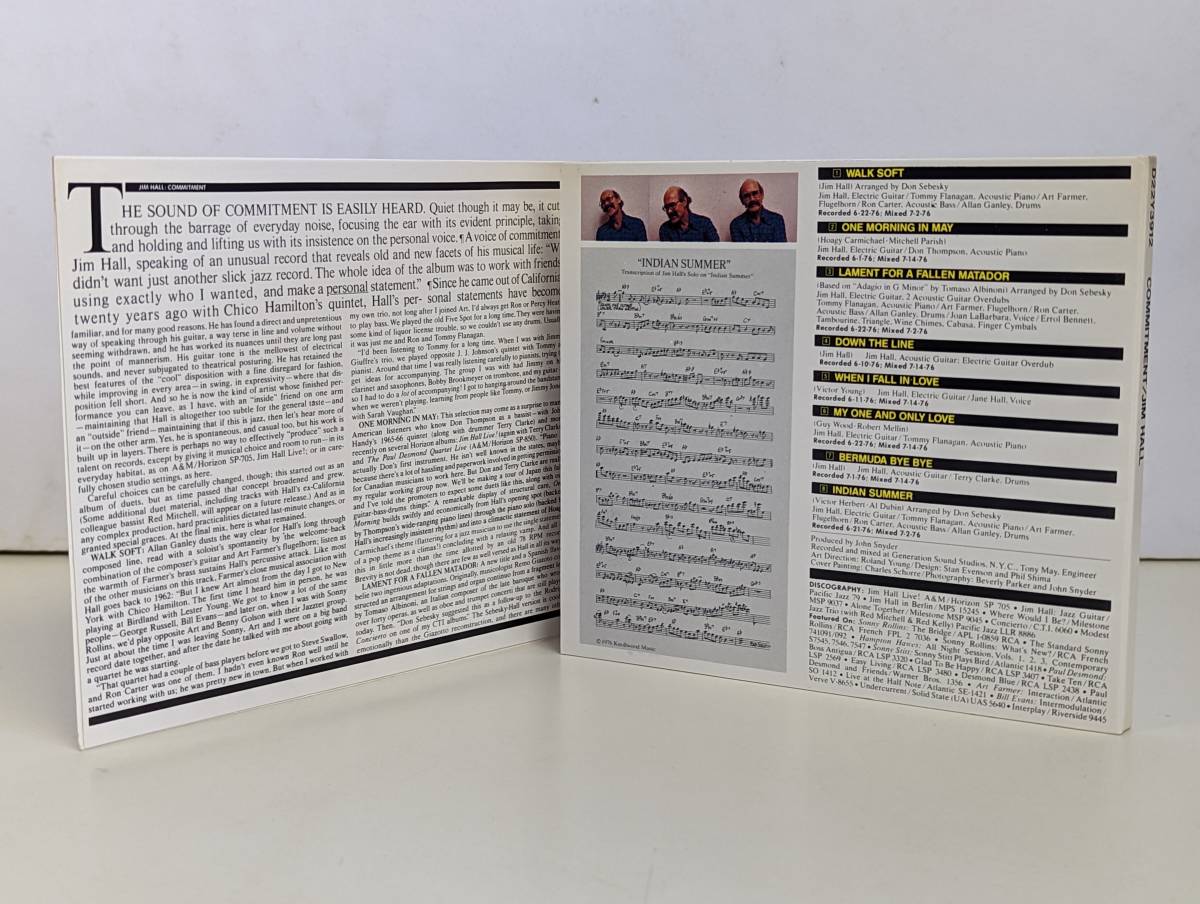 JIM HALL: COMMITMENT
THE SOUND OF COMMITMENT IS EASILY HEARD. Quiet though it may be, it cut
through the barrage of everyday noise, focusing the ear with its evident principle, taking
and holding and lifting us with its insistence on the personal voice. ¶A voice of commitment
Jim Hall, speaking of an unusual record that reveals old and new facets of his musical life: "W
didn't want just another slick jazz record. The whole idea of the album was to work with friends
using exactly who I wanted, and make a personal statement." ¶Since he came out of California
twenty years ago with Chico Hamilton's quintet, Hall's per- sonal statements have become
familiar, and for many good reasons. He has found a direct and unpretentious
way of speaking through his guitar, a way terse in line and volume without
seeming withdrawn, and he has worked its nuances until they are long past
the point of mannerism. His guitar tone is the mellowest of electrical
sounds, and never subjugated to theatrical posturing. He has retained the
best features of the "cool" disposition with a fine disregard for fashion,
while improving in every area—in swing, in expressivity—where that dis-
position fell short. And so he is now the kind of artist whose finished per-
formance you can leave, as I have, with an "inside" friend on one arm
—maintaining that Hall is altogether too subtle for the general taste—and
an "outside" friend—maintaining that if this is jazz, then let's hear more of
it—on the other arm. Yes, he is spontaneous, and casual too, but his work is
built up in layers. There is perhaps no way to effectively "produce" such a
talent on records, except by giving it musical choice and room to run—in its
everyday habitat, as on A&M/Horizon SP-705, Jim Hall Live!; or in care-
fully chosen studio settings, as here.
Careful choices can be carefully changed, though; this started out as an
album of duets, but as time passed that concept broadened and grew.
(Some additional duet material, including tracks with Hall's ex-California
colleague bassist Red Mitchell, will appear on a future release.) And as in
any complex production, hard practicalities dictated last-minute changes, or
granted special graces. At the final mix, here is what remained.
WALK SOFT: Allan Ganley dusts the way clear for Hall's long through
composed line, read with a soloist's spontaneity by the welcome-back
combination of the composer's guitar and Art Farmer's flugelhorn; listen as
the warmth of Farmer's brass sustains Hall's percussive attack. Like most
of the other musicians on this track, Farmer's close musical association with
Hall goes back to 1962: "But I knew Art almost from the day I got to New
York with Chico Hamilton. The first time I heard him in person, he was
playing at Birdland with Lester Young. We got to know a lot of the same
people—George Russell, Bill Evans—and later on, when I was with Sonny
Rollins, we'd play opposite Art and Benny Golson with their Jazztet group.
Just at about the time I was leaving Sonny, Art and I were on a big band
record date together, and after the date he talked with me about going with
a quartet he was starting.
"That quartet had a couple of bass players before we got to Steve Swallow,
and Ron Carter was one of them. I hadn't even known Ron well until he
started working with us; he was pretty new in town. But when I worked with
my own trio, not long after I joined Art, I'd always get Ron or Percy Heat
to play bass. We played the old Five Spot for a long time. They were having
some kind of liquor license trouble, so we couldn't use any drums. Usual
it was just me and Ron and Tommy Flanagan.
"I'd been listening to Tommy for a long time. When I was with Jimm
Giuffre's trio, we played opposite J. J. Johnson's quintet with Tommy
pianist. Around that time I was really listening carefully to pianists, trying
get ideas for accompanying. The group I was with had Jimmy on
clarinet and saxophones, Bobby Brookmeyer on trombone, and my guitar
so I had to do a lot of accompanying! I got to hanging around the bandstan
when we weren't playing, learning from people like Tommy, or Jimmy Jone
with Sarah Vaughan."
ONE MORNING IN MAY: This selection may come as a surprise to man
American listeners who know Don Thompson as a bassist—with John
Handy's 1965-66 quintet (along with drummer Terry Clarke) and mor
recently on several Horizon albums: Jim Hall Live! (again with Terry Clarke
and The Paul Desmond Quartet Live (A&M/Horizon SP-850). "Piano
actually Don's first instrument. He isn't well known in the states, mayb
because there's a lot of hassling and paperwork involved in getting permissi
for Canadian musicians to work here. But Don and Terry Clarke are real
my regular working group now. We'll be making a tour of Japan this fal
and I've told the promoters to expect some duets like this, along with o
guitar-bass-drums things." A remarkable display of structural care, On
Morning builds swiftly and economically from Hall's opening spot (backe
by Thompson's wide-ranging piano lines) through the piano solo (backed b
Hall's increasingly insistent rhythm) and into a climactic statement of Hoag
Carmichael's theme (flattering for a jazz musician to use the single statemen
of a pop theme as a climax!) concluding with a relaxing vamp. And all
this in little more than the time allotted by an old 78 RPM recor
Brevity is not dead, though there are few as well versed as Hall in all its way
LAMENT FOR A FALLEN MATADOR: A new title and a Spanish flavo
belie two ingenious adaptations. Originally, musicologist Remo Giazotto co
structed an arrangement for strings and organ continuo from a fragment le
by Tomaso Albinoni, an Italian composer of the late baroque who wro
over fifty operas, as well as oboe and trumpet concerti that are still playe
today. Then, "Don Sebesky suggested this as a follow-up to the Rodrig
Concierto on one of my CTI albums." The Sebesky-Hall version is cool
emotionally than the Giazotto reconstruction, and there are many oth
"INDIAN SUMMER"
Transcription of Jim Hall's Solo on "Indian Summer"
©1976 Kindwood Music
1 WALK SOFT
(Jim Hall) Arranged by Don Sebesky
Jim Hall, Electric Guitar/Tommy Flanagan, Acoustic Piano/Art Farmer,
Flugelhorn/Ron Carter, Acoustic Bass/Allan Ganley, Drums
Recorded 6-22-76; Mixed 7-2-76
2 ONE MORNING IN MAY
(Hoagy Carmichael-Mitchell Parish)
Jim Hall, Electric Guitar/Don Thompson, Acoustic Piano
Recorded 6-1-76; Mixed 7-14-76
3 LAMENT FOR A FALLEN MATADOR
(Based on "Adagio in G Minor" by Tomaso Albinoni) Arranged by Don Sebesky
Jim Hall, Electric Guitar, 2 Acoustic Guitar Overdubs
Tommy Flanagan, Acoustic Piano/Art Farmer, Flugelhorn/Ron Carter,
Acoustic Bass/Allan Ganley, Drums/Joan LaBarbara, Voice/Errol Bennett,
Tambourine, Triangle, Wine Chimes, Cabasa, Finger Cymbals
Recorded 6-22-76; Mixed 7-2-76
4 DOWN THE LINE
(Jim Hall) Jim Hall, Acoustic Guitar; Electric Guitar Overdub
Recorded 6-10-76; Mixed 7-14-76
5 WHEN I FALL IN LOVE
(Victor Young) Jim Hall, Electric Guitar/Jane Hall, Voice
Recorded 6-11-76; Mixed 7-14-76
6 MY ONE AND ONLY LOVE
(Guy Wood-Robert Mellin)
Jim Hall, Electric Guitar/Tommy Flanagan, Acoustic Piano
Recorded 6-22-76; Mixed 7-14-76
7 BERMUDA BYE BYE
(Jim Hall) Jim Hall, Acoustic Guitar/Terry Clarke, Drums
Recorded 7-1-76; Mixed 7-14-76
8 INDIAN SUMMER
(Victor Herbert-Al Dubin) Arranged by Don Sebesky
Jim Hall, Electric Guitar/Tommy Flanagan, Acoustic Piano/Art Farmer,
Flugelhorn/Ron Carter, Acoustic Bass/Allan Ganley, Drums
Recorded 6-21-76; Mixed 7-2-76
Produced by John Snyder
Recorded and mixed at Generation Sound Studios, N.Y.C., Tony May, Engineer
Art Direction: Roland Young/Design: Stan Evenson and Phil Shima
Cover Painting: Charles Schorre/Photography: Beverly Parker and John Snyder
DISCOGRAPHY: Jim Hall Live! A&M/Horizon SP 705 • Jim Hall: Jazz Guitar/
Pacific Jazz 79 • Jim Hall in Berlin/MPS 15245 • Where Would I Be?/Milestone
MSP 9037 • Alone Together/Milestone MSP 9045 • Concierto/C.T.I. 6060 • Modest
Jazz Trio (with Red Mitchell & Red Kelly) Pacific Jazz LLR 8886
Featured On: Sonny Rollins: The Bridge/APL 1-0859 RCA • The Standard Sonny
Rollins/RCA French FPL 2 7036 • Sonny Rollins: What's New?/RCA French
741091/092 • Hampton Hawes: All Night Session, Vols. 1, 2, 3, Contemporary
57545, 7546, 7547 • Sonny Stitt: Sonny Stitt Plays Bird/Atlantic 1418 • Paul Desmond:
Bossa Antigua/RCA LSP 3320 • Glad To Be Happy/RCA LSP 3407 • Take Ten/RCA
LSP 2569 • Easy Living/RCA LSP 3480 • Desmond Blue/RCA LSP 2438 • Paul
Desmond and Friends/Warner Bros. 1356 • Art Farmer: Interaction/Atlantic
SO 1412 • Live at the Half Note/Atlantic SE-1421 • Bill Evans: Intermodulation/
Verve V-8655 • Undercurrent/Solid State (UA) UAS 5640 • Interplay/Riverside 9445
D22Y3912 COMMITMENT/JIM HALL